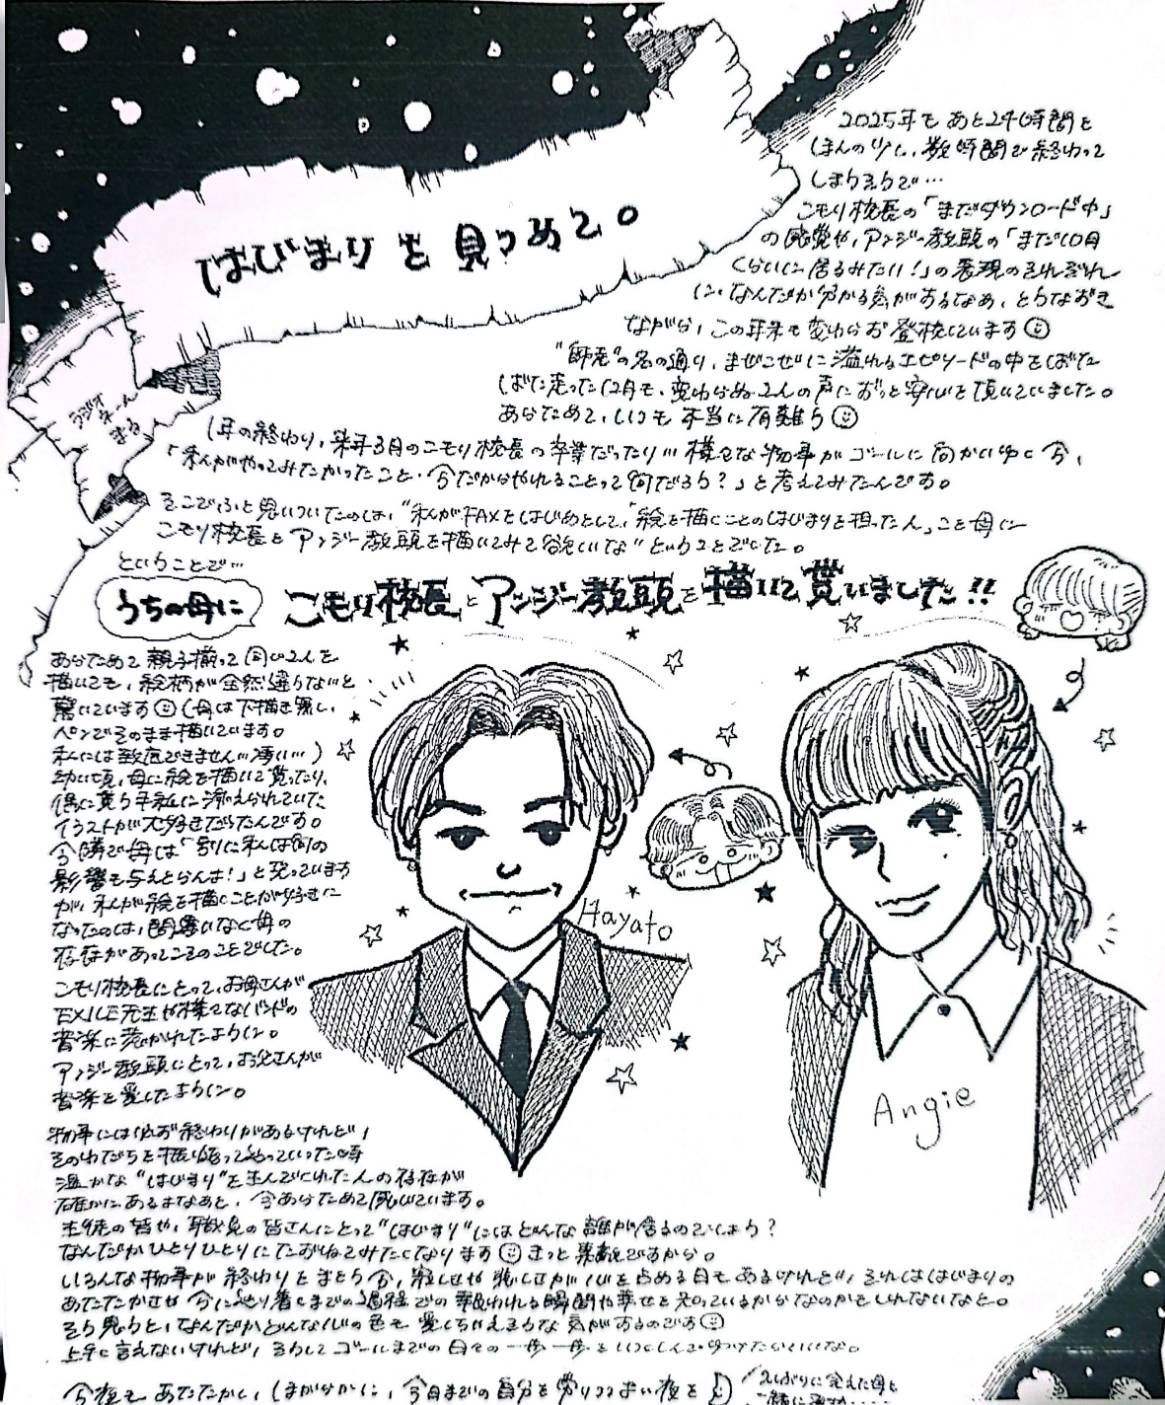 はじまりを見つめて。
ラジオネーム
まる
2025年もあと24時間と
ほんの少し、数時間で終わって
しまうそうで…
こもり校長の「まだダウンロード中」
の感覚や、アンジー教頭の「まだ10月
くらいに居るみたい！」の表現のそれぞれ
に、なんだか分かる気がするなあ、とうなずき
ながら、この年末も変わらず登校しています
"師走"の名の通り、まぜこぜに溢れるエピソードの中をばた
ばた走った12月も、変わらぬ2人の声にずっと安心を頂いていました。
あらためて、いつも本当に有難う
1年の終わり、来年3月のこもり校長の卒業だったり… 様々な物事がゴールに向かいゆく今、
「私がやってみたかったこと・今だからやれることって何だろう？」と考えてみたんです。
そこでふと思いついたのは、"私がFAXをはじめとして、「絵を描くことのはじまりを担った人」こと母に
こもり校長とアンジー教頭を描いてみて欲しいな"ということでした。
ということで…
うちの母に
こもり校長とアンジー教頭を描いて貰いました!!
あらためて親子揃って同じ2人を
描いても、絵柄が全然違うな…と
驚いています（母は下描き無し、
ペンでそのまま描いています。
私には到底できません…凄い…）
幼い頃、母に絵を描いて貰ったり、
偶に貰う手紙に添えられていた
イラストが大好きだったんです。
今隣で母は「別に私は何の
影響も与えとらんよ！」と笑っています
が、私が絵を描くことが好きに
なったのは、間違いなく母の
存在があってこそのことでした。
こもり校長にとって、お母さんが
EXILE先生や様々なバンドの
音楽に惹かれたように。
アンジー教頭にとって、お父さんが
音楽を愛したように。
物事には必ず終わりがあるけれど、
そのわだちを振り返って辿っていった時
温かな"はじまり"を生んでくれた人の存在が
確かにあるよなあと、今あらためて感じています。
生徒の皆や、職員の皆さんにとって"はじまり"にはどんな誰が居るのでしょう？
なんだかひとりひとりにたずねてみたくなります きっと素敵ですから。
いろんな物事が終わりをまとう今、寂しさや悲しさが心を占める日もあるけれど、それははじまりの
あたたかさや今に辿り着くまでの過程での報われる瞬間や幸せを知っているからなのかもしれないなと。
そう思うと、なんだかどんな心の色も愛しちゃえそうな気がするのです
上手く言えないけれど、そうしてゴールまでの日々の一歩一歩を
今夜もあたたかく、しなやかに、今日までの自分を労りつつよい夜を
Hayato
Angie